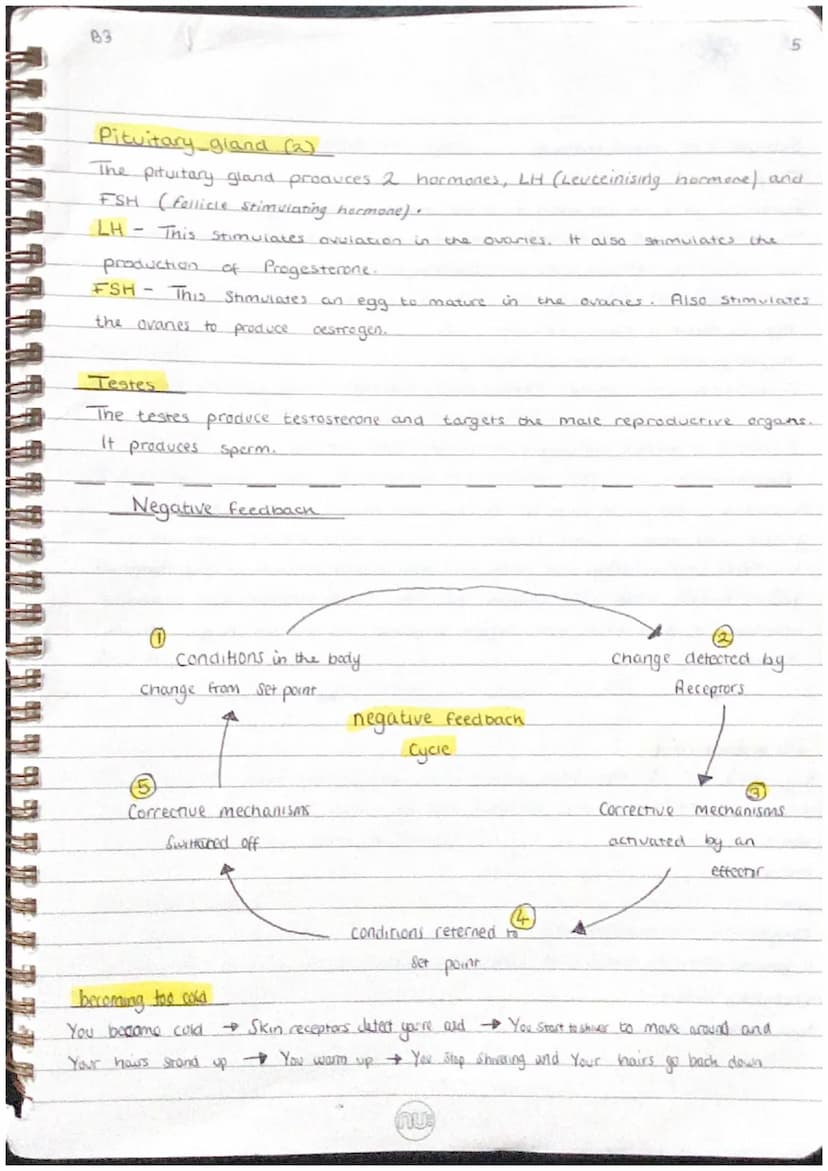 B3
5
Pituitary gland (2)
The pituitary gland produces 2 hormones, LH (Leuteinising hormone) and
FSH (follicle stimulating hormone).
LH - This stimulates ovulation in the ovaries. It also stimulates the
production of Progesterone.
FSH - This stimulates an egg to mature in the ovaries. Also stimulates
the ovaries to produce oestrogen.
Testes
The testes produce testosterone and targets the male reproductive organs.
It produces sperm.
Negative feedback
①
②
Conditions in the body
Change detected by
Change from set point
Receptors
negative feedback
Cycle
⑤
③
Corrective mechanisms
Corrective mechanisms
Switched off
activated by an
effector
④
Conditions reterned to
Set point
becoming too cold
You become cold → Skin receptors detect you're cold → You start to shiver to move around and
Your hairs stand up → You warm up → You stop shivering and Your hairs go back down
nu: